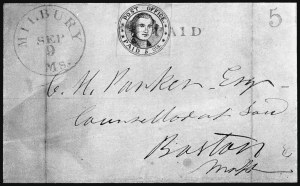 MILBURY
SEP
9
MS.
POST OFFICE
PAID 5 Cts.
PAID
5
C. H. Parker Esqr
Counsellor at Law
Boston
Mass